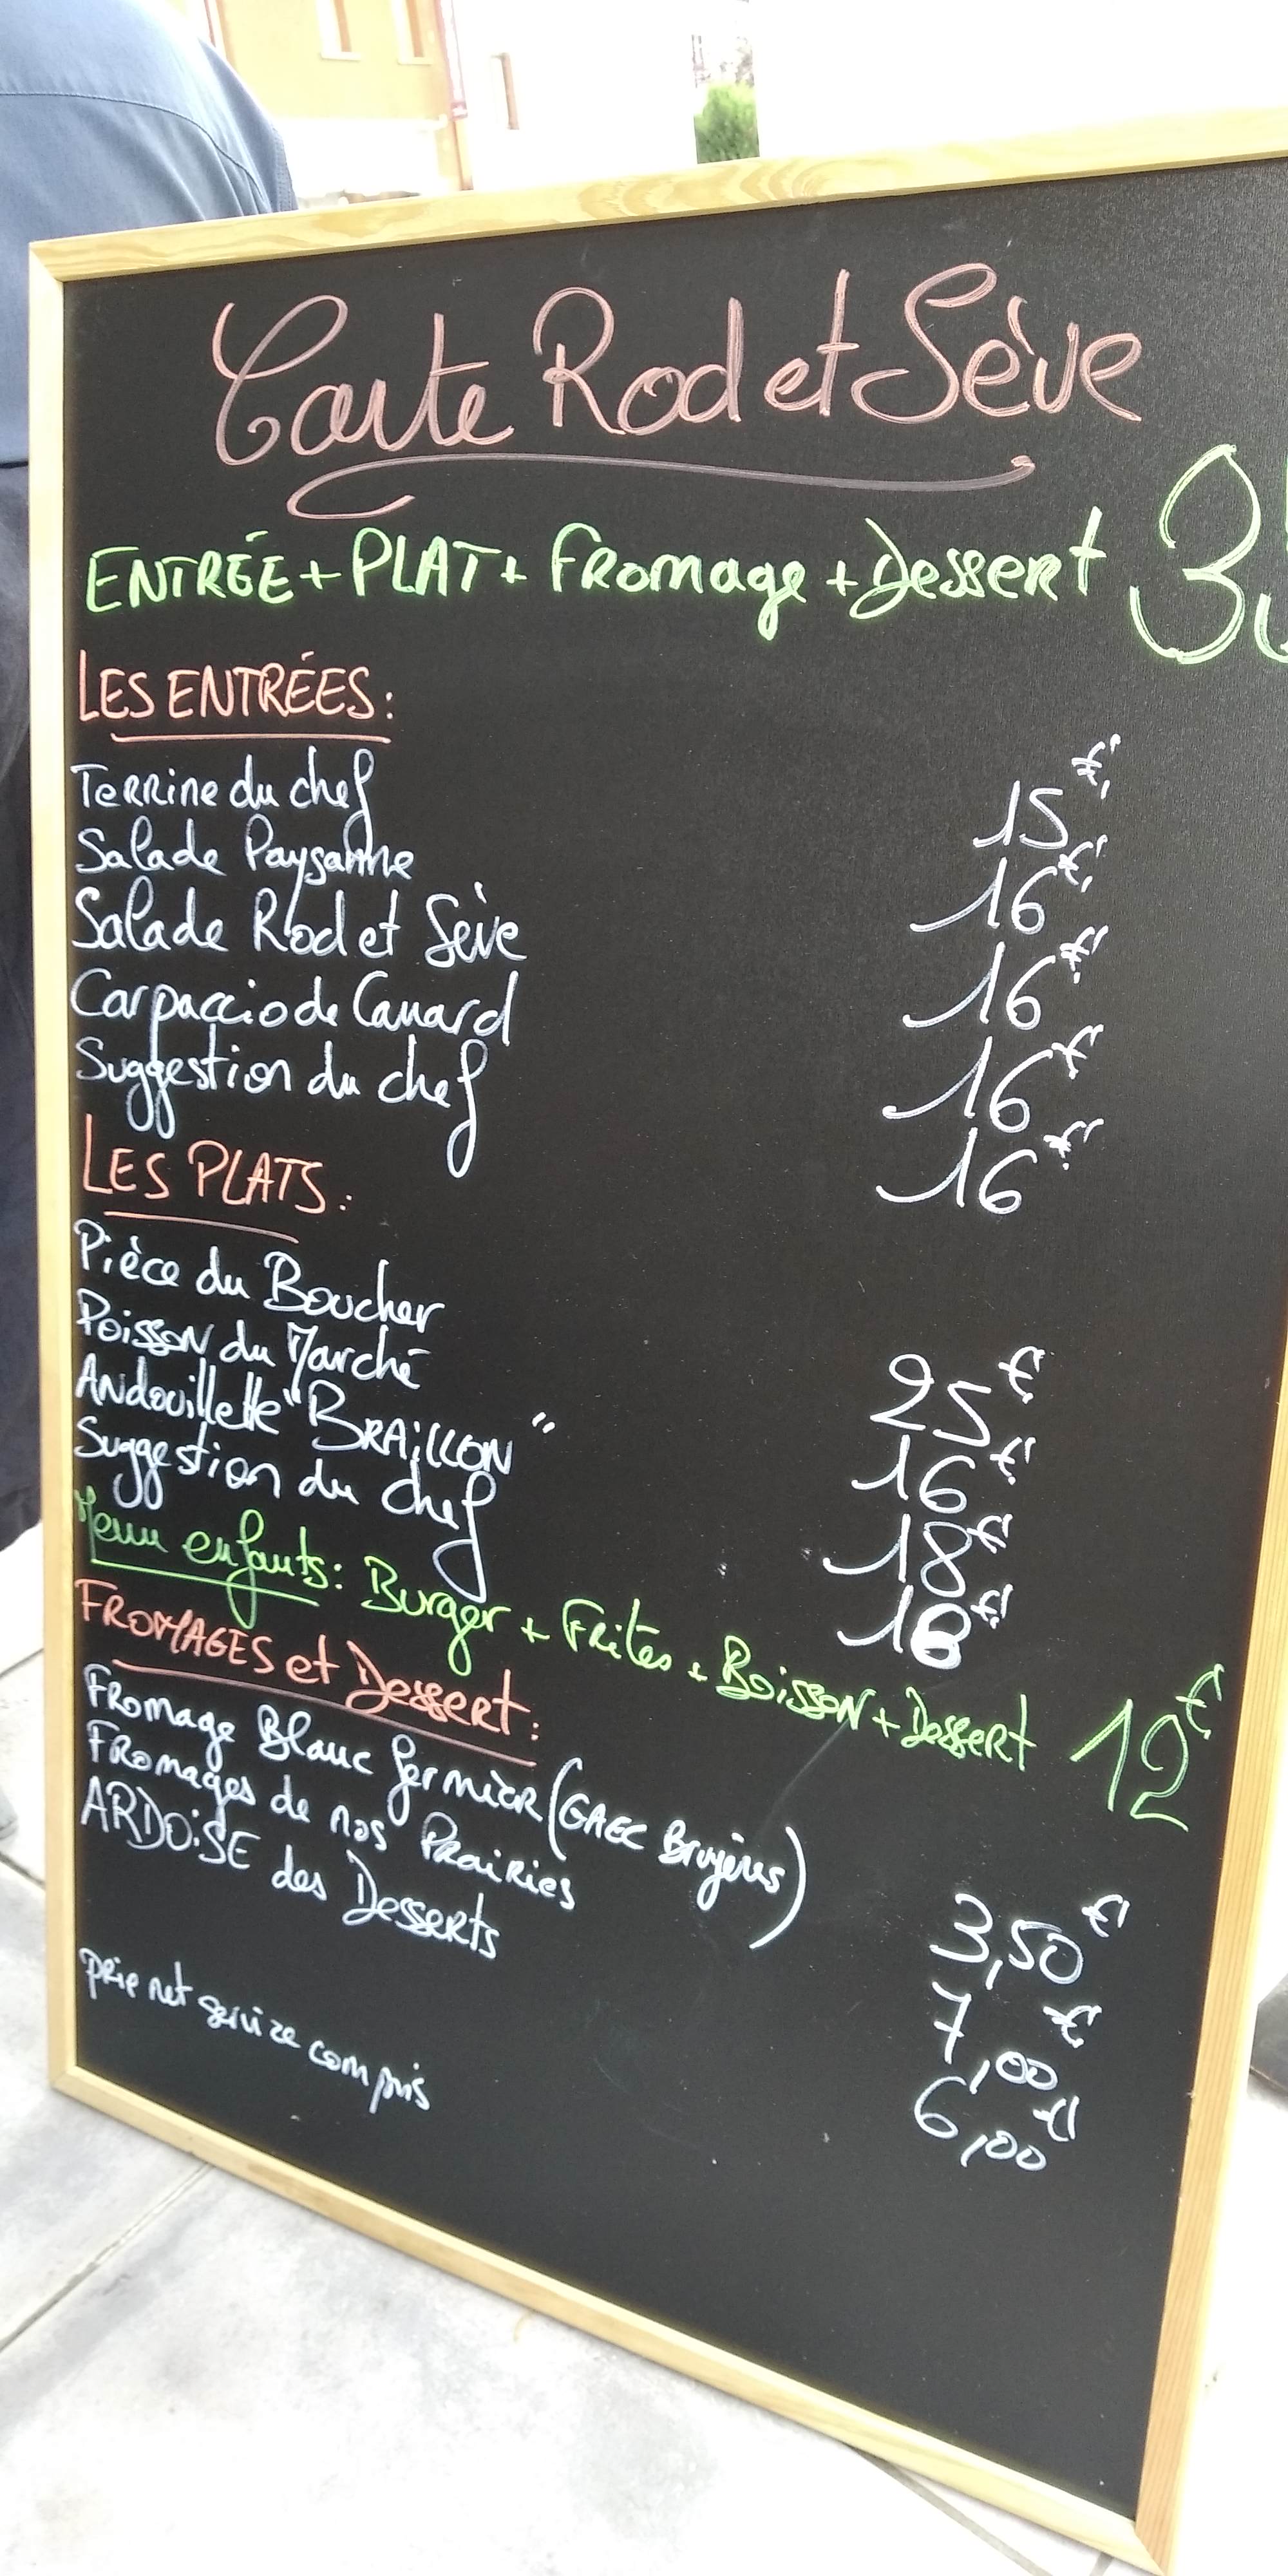 Carte Rod et Sève
ENTRÉE + PLAT + Fromage + Dessert 3
LES ENTRÉES:
Terrine du chef 15€
Salade Paysanne 16€
Salade Rod et Sève 16€
Carpaccio de Canard 16€
Suggestion du chef 16€
LES PLATS:
Pièce du Boucher 25€
Poisson du Marché 16€
Andouillette "BRAILLON" 18€
Suggestion du chef 18€
Menu enfants: Burger + Frites + Boisson + Dessert 12€
FROMAGES et Dessert:
Fromage Blanc fermier (GAEC Bruyères) 3,50€
Fromages de nos Prairies 7,00€
ARDOISE des Desserts 6,00€
prix net service compris